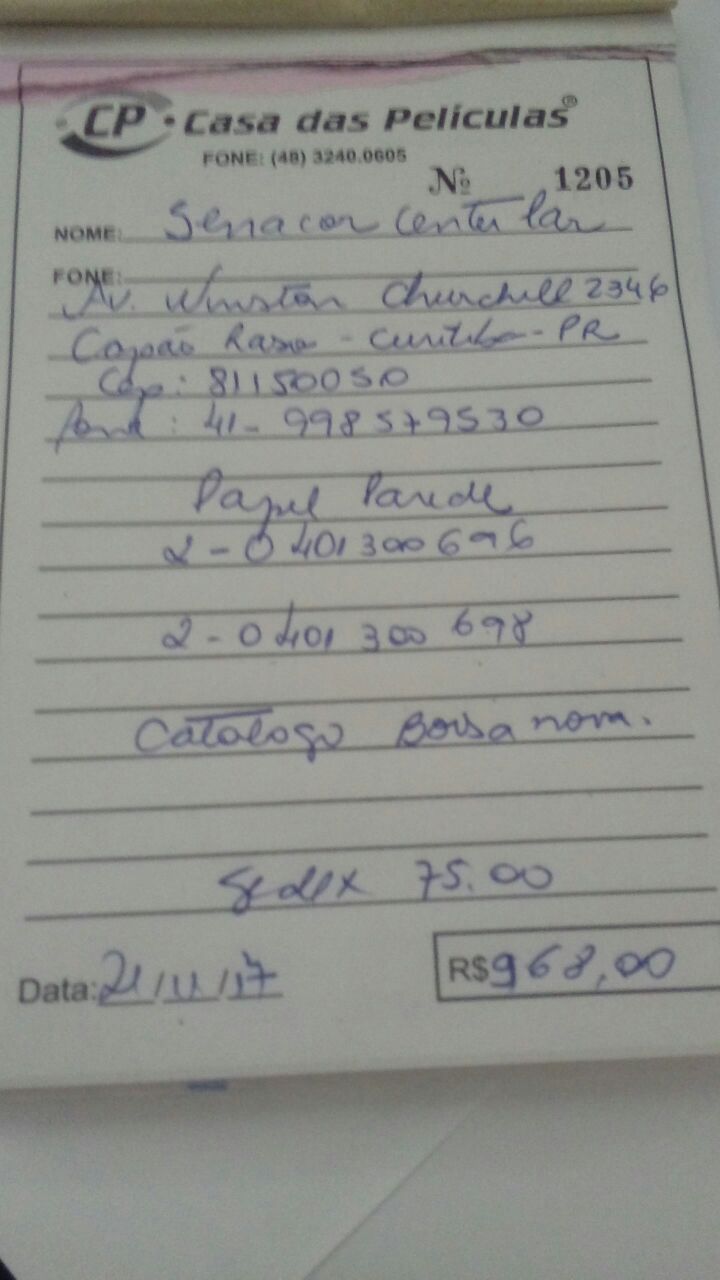 CP • Casa das Películas®
FONE: (48) 3240.0605
Nº 1205
NOME: Senacor Center Lar
FONE:
Av. Winston Churchill 2346
Capão Raso - Curitiba - PR
Cep: 81150050
Fone: 41- 998579530
Papel Parede
2 - 0401300696
2 - 0401 300 698
Catalogo Bossa nova.
Sedex 75.00
Data: 21/11/17
R$ 968,00